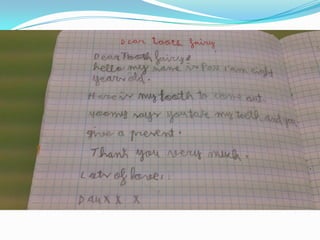 Dear tooth fairy
Dear Tooth fairy
hello my name is Pau I am eight
years old.
Here is my tooth to come out
says you take my teeth and you
give a present.
Thank you very much.
Lots of love:
Pau X X X